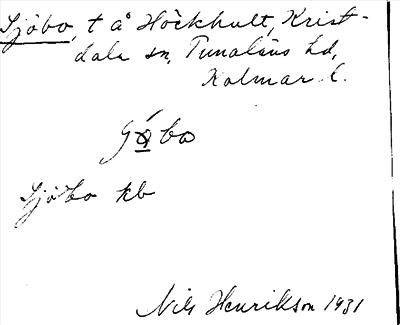 Sjöbo, t å Höckhult, Krist-
dala sn, Tunaläns hd,
Kalmar l.
Sjöbo kb
Nils Henrikson 1931